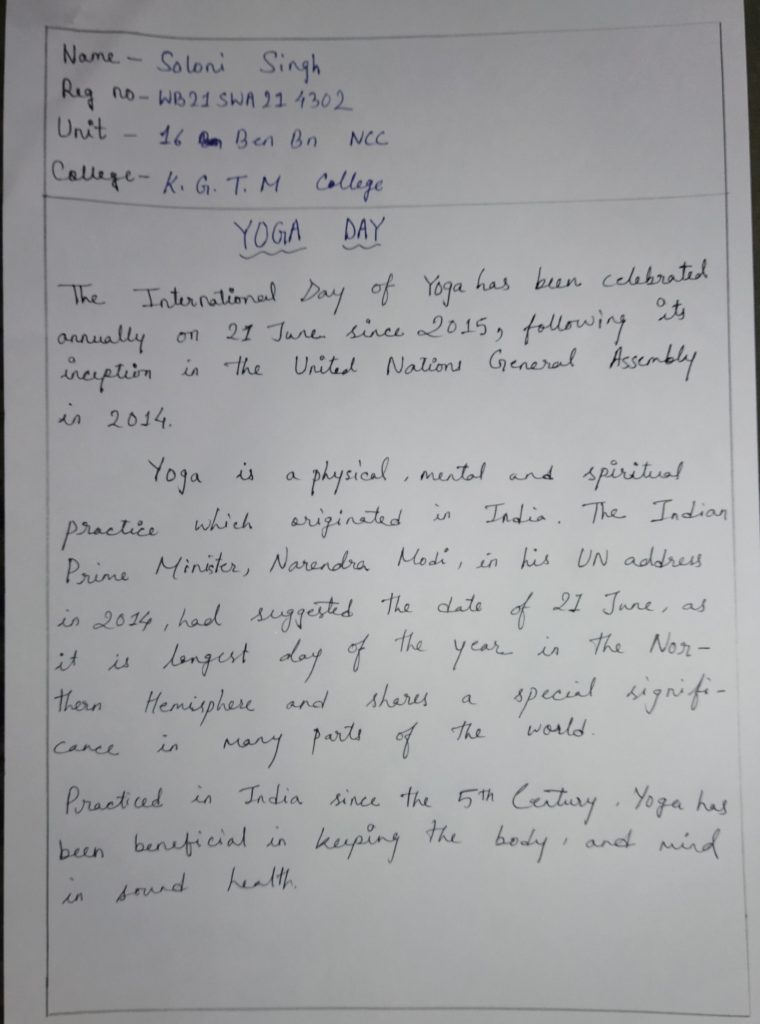 Name - Soloni Singh
Reg no - WB21SWA214302
Unit - 16 Ben Bn NCC
College - K. G. T. M College
YOGA DAY
The International Day of Yoga has been celebrated
annually on 21 June since 2015, following its
inception in the United Nations General Assembly
in 2014.
Yoga is a physical, mental and spiritual
practice which originated in India. The Indian
Prime Minister, Narendra Modi, in his UN address
in 2014, had suggested the date of 21 June, as
it is longest day of the year in the Nor-
thern Hemisphere and shares a special signifi-
cance in many parts of the world.
Practiced in India since the 5th Century. Yoga has
been beneficial in keeping the body, and mind
in sound health.